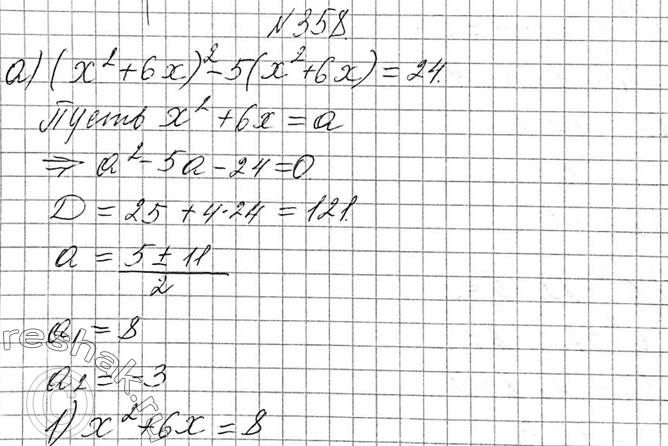 №358.
а) (x²+6x)²-5(x²+6x)=24.
Пусть x²+6x=a
⇒ a²-5a-24=0
D=25+4·24=121.
a = (5±11)/2
a₁=8
a₂=-3
1) x²+6x=8
reshak.ru